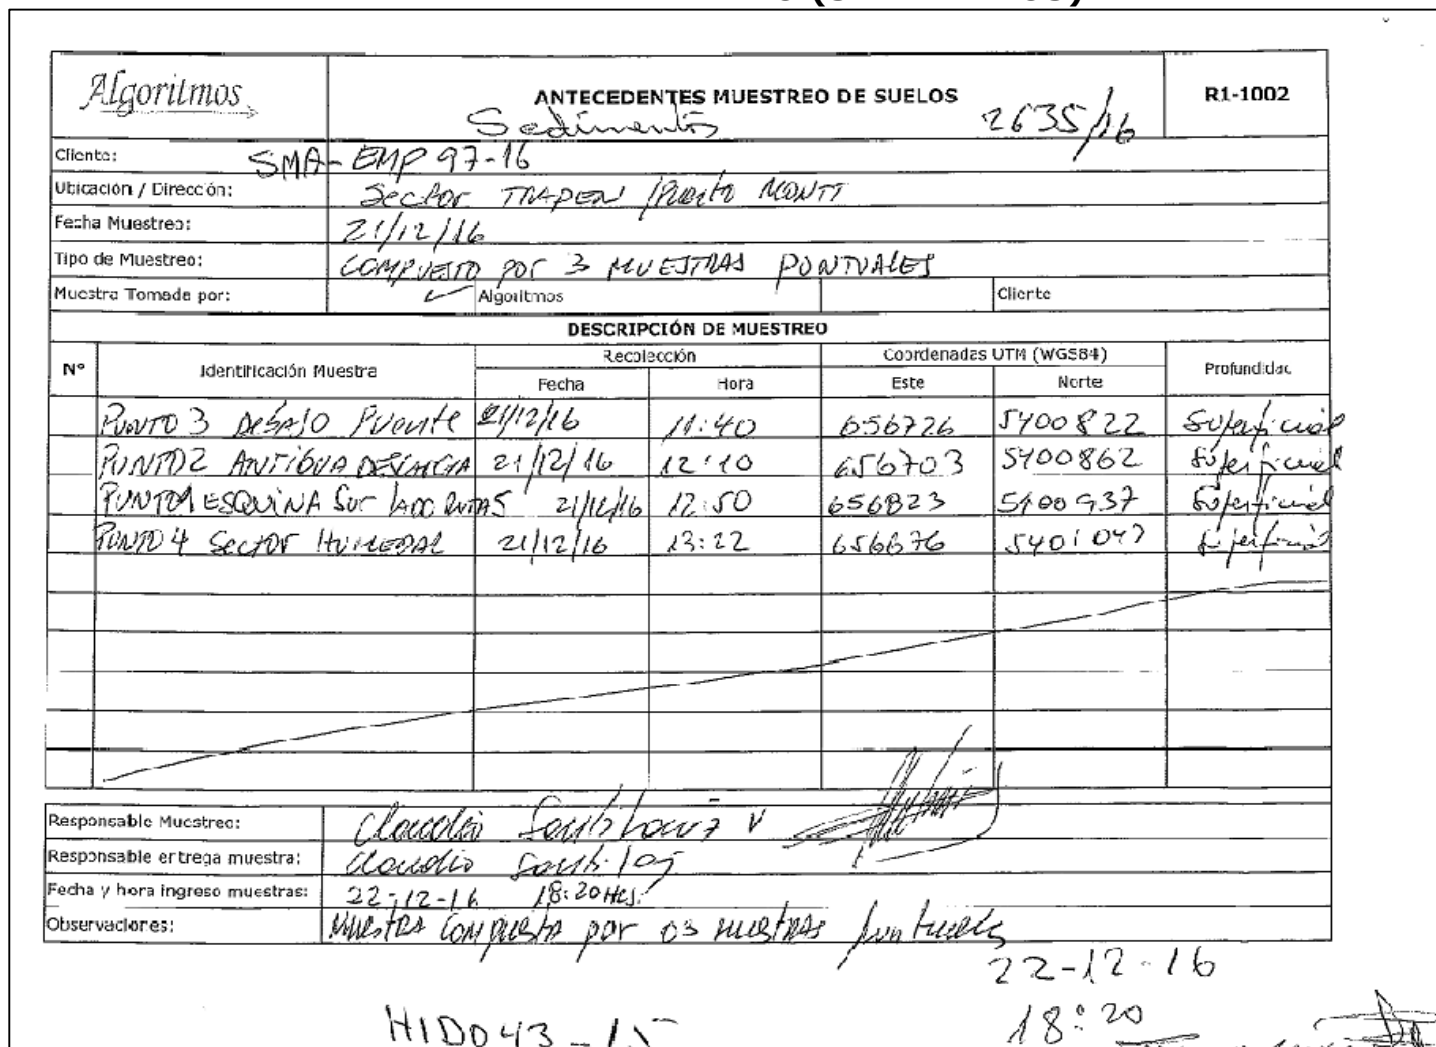 Algoritmos
ANTECEDENTES MUESTREO DE SUELOS
R1-1002
Sedimentos 2635/16
Cliente: SMA-EMP 97-16
Ubicación / Dirección: Sector TRAPEN / Puerto MONTT
Fecha Muestreo: 21/12/16
Tipo de Muestreo: COMPUESTO por 3 MUESTRAS PUNTUALES
Muestra Tomada por: ✓ Algoritmos Cliente
DESCRIPCIÓN DE MUESTREO
N° Identificación Muestra Recolección Coordenadas UTM (WGS84) Profundidad
Fecha Hora Este Norte
PUNTO 3 DEBAJO PUENTE 21/12/16 11:40 656726 5400822 Superficial
PUNTO 2 ANTIGUA DESCARGA 21/12/16 12:10 656703 5400862 Superficial
PUNTO 1 ESQUINA Sur LADO RUTA 5 21/12/16 12:50 656823 5400937 Superficial
PUNTO 4 Sector HUMEDAL 21/12/16 13:22 656876 5401047 Superficial
Responsable Muestreo: Claudio V
Responsable entrega muestra: Claudio
Fecha y hora ingreso muestras: 22-12-16 18:20 Hrs.
Observaciones: Muestra compuesta por 03 muestras puntuales
22-12-16
18:20
HID043-15